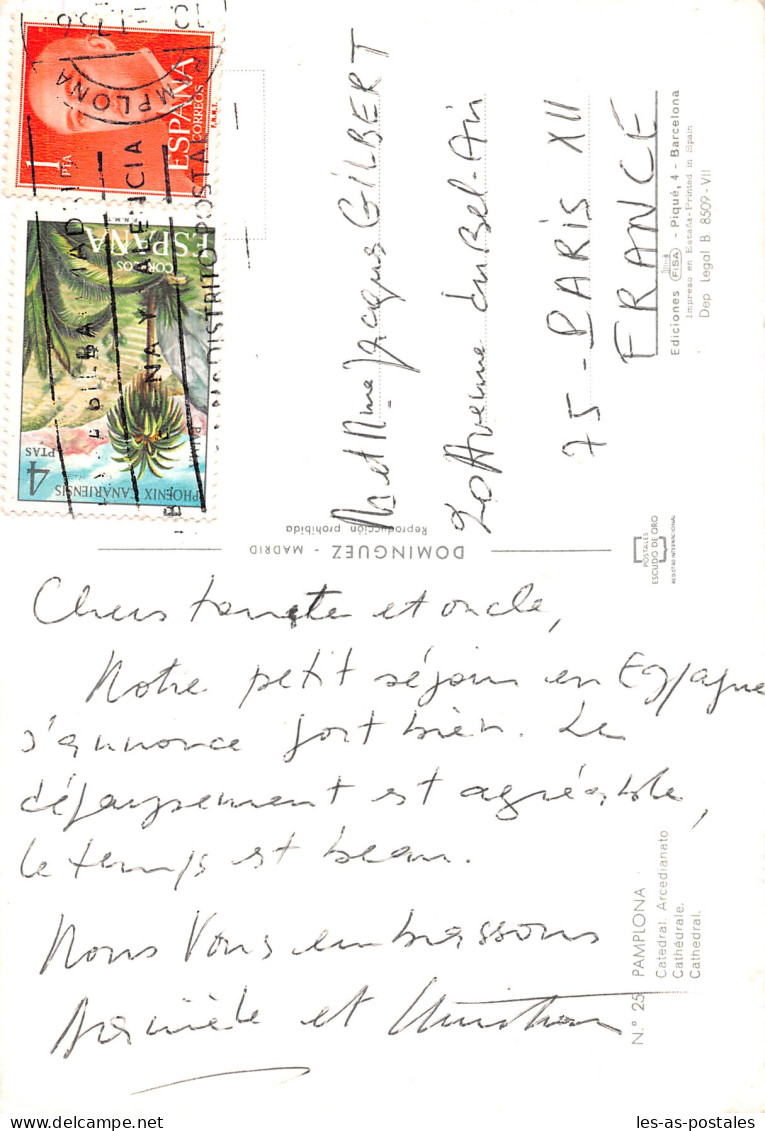 Chers tante et oncle,
Notre petit séjour en Espagne
s'annonce fort bien. Le
dépaysement est agréable,
le temps est beau.
Nous vous embrassons
et Christian
M et Mme Jacques GILBERT
Avenue du Bel-Air
75 - PARIS XII
FRANCE
DOMINGUEZ - MADRID
Reproducción prohibida
N.º 25 PAMPLONA
Catedral. Arcedianato
Cathédrale.
Cathedral.
POSTALES
ESCUDO DE ORO
REGISTRO INTERNACIONAL
Ediciones FISA - Piqué, 4 - Barcelona
Impreso en España-Printed in Spain
Dep. Legal B. 8509-VII
1 PTA
ESPAÑA
CORREOS
F.N.M.T.
PAMPLONA
ESPAÑA
CORREOS
4 PTAS
PHOENIX CANARIENSIS
DISTRITO POSTAL
les-as-postales